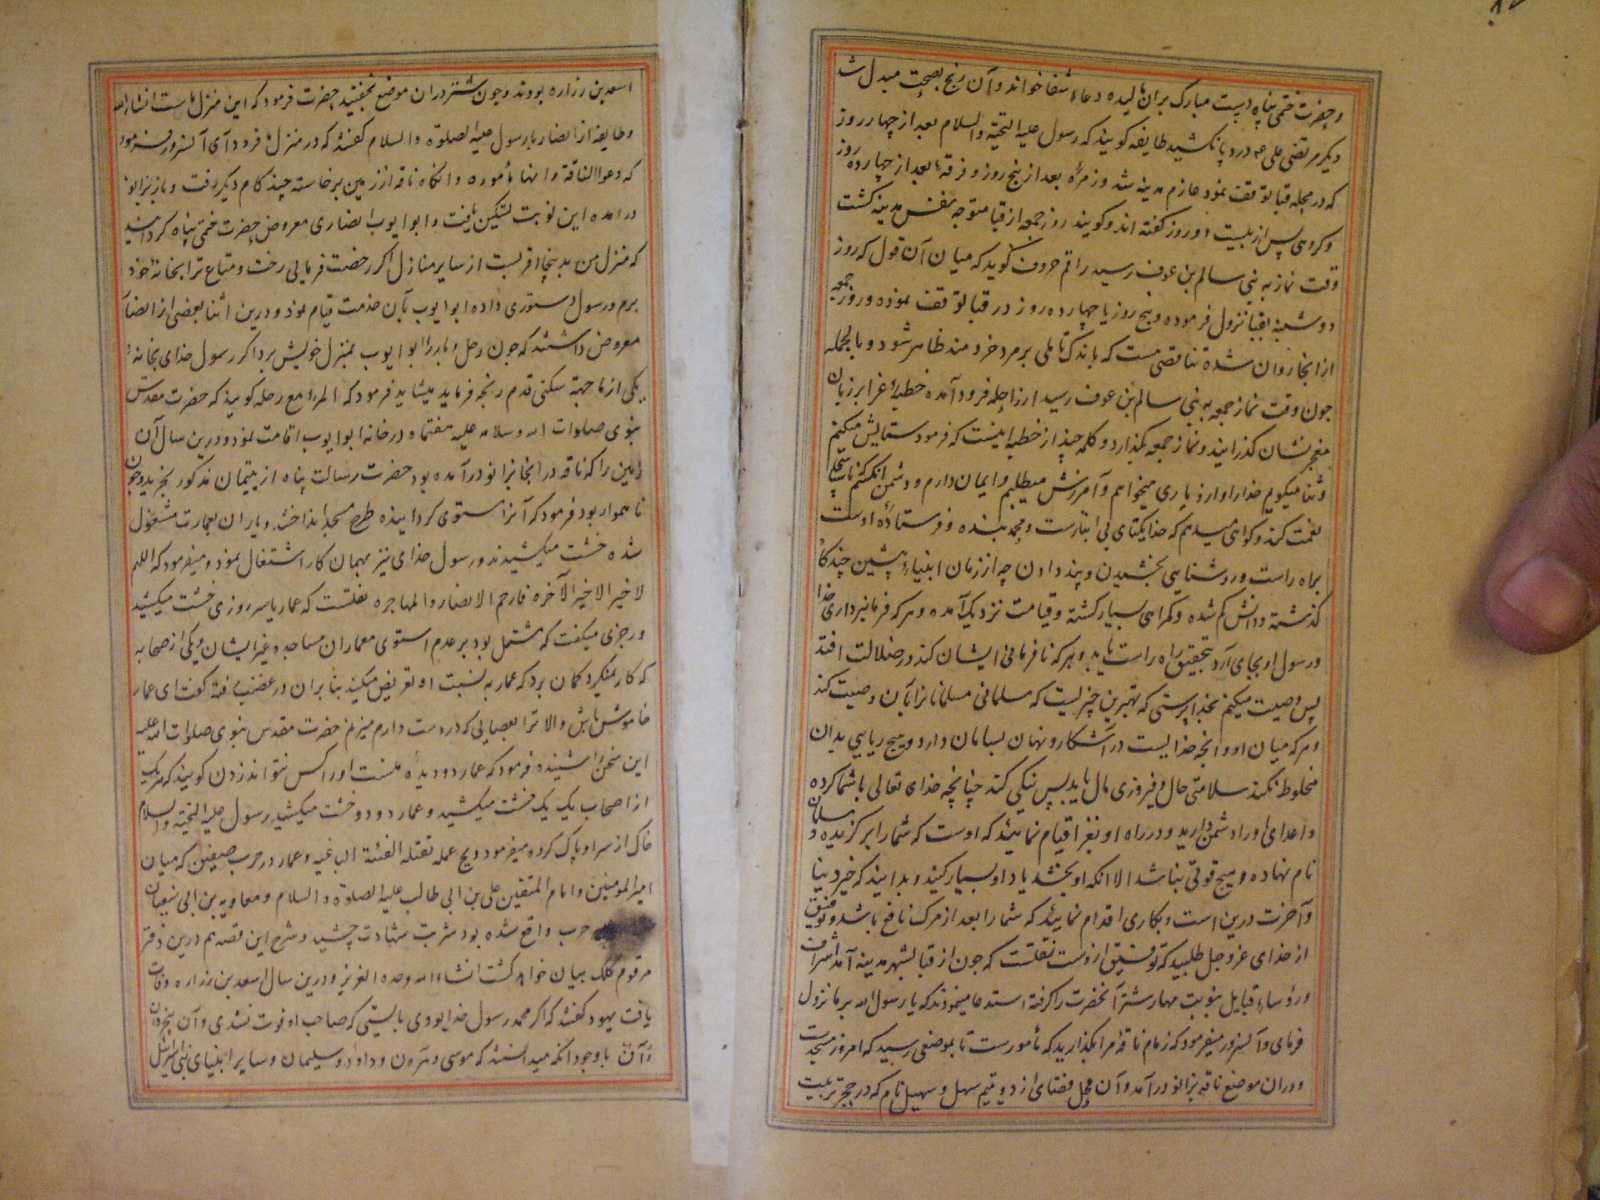 و حضرت ختمی پناه دست مبارک بران مالیده دعاء شفا خواند و آن رنج بصحت مبدل شد
دیکر مرتضی علی درد پا نکشید طایفه کویند که رسول علیه التحیة والسلام بعد از چهار روز
که در محله قبا توقف نمود عازم مدینه شد و زمرهٔ بعد از پنج روز و فرقهٔ بعد از چهارده روز
و کروهی پس از بیست و دو روز کفته اند و کویند روز جمعه از قبا متوجه نفس مدینه کشت
وقت نماز به بنی سالم بن عوف رسید راقم حروف کوید که میان آن قول که روز
دوشنبه بقبا نزول فرموده و پنج روز یا چهارده روز در قبا توقف نموده و روز جمعه
از انجا روان شده تناقضی هست که باندک تاملی بر مرد خردمند ظاهر شود و بالجمله
چون وقت نماز جمعه به بنی سالم بن عوف رسید از راحله فرود آمده خطبهٔ غرا بر زبان
معجز نشان کذرانید و نماز جمعه بکذارد و کلمه چند از خطبه اینست که فرمود ستایش میکنم
و ثنا میکویم خدا را و ازو یاری میخواهم و آمرزش میطلبم و ایمان دارم و دشمن
نعمت کند و کواهی میدهم که خدا یکتای بی انبازست و محمد بنده و فرستادهٔ اوست
براه راست و روشنایی بخشیدن و پند دادن چه از زمان انبیاء پیشین چند کاه
کذشته و دانش کم شده و کمراهی بسیار کشته و قیامت نزدیک آمده و هر که فرمانبرداری خدا
و رسول او بجای آرد بتحقیق راه راست یابد و هر که نافرمانی ایشان کند در ضلالت افتد
پس وصیت میکنم بخدا پرستی که بهترین چیزیست که مسلمانی مسلمانانرا بآن وصیت کند
و هر که میان او و آنچه خدایست در آشکار و نهان بسامان دارد و هیچ ریایی بدان
مخلوط نکند سلامتی حال و فیروزی مال یابد پس نیکی کند چنانچه خدای تعالی با شما کرده
و اعدای او را دشمن دارید و در راه او بغزا قیام نمایید که اوست که شما را برکزیده و مسلمان
نام نهاده و هیچ قوتی نباشد الا انکه او بخشد یاد او بسیار کنید و بدانید که خیر دنیا
و آخرت درین است و بکاری اقدام نمایید که شما را بعد از مرک نافع باشد و توفیق
از خدای عز و جل طلبید که توفیق ازوست نقلست که چون از قبا بشهر مدینه آمد اشراف
و رؤساء قبایل بنوبت مهار شتر آنحضرت را کرفته استدعا مینمودند که یا رسول الله بر ما نزول
فرمای و آن سرور میفرمود که زمام ناقهٔ مرا بکذارید که مأمورست تا بموضعی رسید که امروز مسجدست
و دران موضع ناقه بزانو درآمد و آن محل فضای از دو یتیم سهل و سهیل نام که در حجر تربیت
اسعد بن زراره بودند و چون شتر دران موضع بخفتید حضرت فرمود که این منزل ماست انشاء الله
و طایفه از انصار با رسول علیه الصلوة والسلام کفتند که در منزل ما فرود آی آن سرور فرمود
که دعوا الناقة فانها مأموره و انکاه ناقه از زمین برخاسته چند کام دیکر رفت و باز بزانو
درآمده این نوبت تسکین یافت و ابو ایوب انصاری معروض حضرت ختمی پناه کردانید
که منزل من بدینجا اقربست از سایر منازل اکر رخصت فرمایی رخت و متاع ترا بخانهٔ خود
برم و رسول دستوری داده ابو ایوب بآن خدمت قیام نمود و درین اثنا بعضی از انصار
معروض داشتند که چون رحل و بار را ابو ایوب بمنزل خویش برد اکر رسول خدای بخانهٔ
یکی از ما جهة سکنی قدم رنجه فرماید میشاید فرمود که المرء مع رحله کویند که حضرت مقدس
نبوی صلوات الله و سلامه علیه هفتماه در خانه ابو ایوب اقامت نمود و درین سال آن
زمین را که ناقه در انجا بزانو درآمده بود حضرت رسالت پناه از یتیمان مذکور بخرید و چون
ناهموار بود فرمود که آنرا مستوی کردانیده طرح مسجد انداختند و یاران بعمارت مشغول
شده خشت میکشیدند و رسول خدای نیز بهمان کار اشتغال نمود و میفرمود که اللهم
لا خیر الا خیر الآخره فارحم الانصار والمهاجره نقلست که عمار یاسر روزی خشت میکشید
و رجزی میکفت که مشتمل بود بر عدم استوی معماران مساجد و غیر ایشان و یکی از صحابه
که کار نمیکرد کمان برد که عمار به نسبت او تعریض میکند بنابران در غضب رفته کفت ای عمار
خاموش باش والا ترا بعصایی که در دست دارم میزنم حضرت مقدس نبوی صلوات الله علیه
این سخن را شنیده فرمود که عمار دو دیدهٔ منست او را کس نتواند زدن کویند که هر یک
از اصحاب یک یک خشت میکشید و عمار دو دو خشت میکشید رسول علیه التحیة والسلام
خاک از سر او پاک کرده میفرمود ویح عمار تقتله الفئة الباغیه و عمار در حرب صفین که میان
امیر المؤمنین و امام المتقین علی بن ابی طالب علیه الصلوة والسلام و معاویه بن ابی سفیان
حرب واقع شده بود شربت شهادت چشید و شرح این قصه هم درین دفتر
مرقوم کلک بیان خواهد کشت انشاء الله وحده العزیز و درین سال اسعد بن زراره وفات
یافت یهود کفتند که اکر محمد رسول خدا بودی بایستی که صاحب او فوت نشدی و آن
با وجود انکه میدانستند که موسی و هرون و داود و سلیمان و سایر انبیای بنی اسرائیل